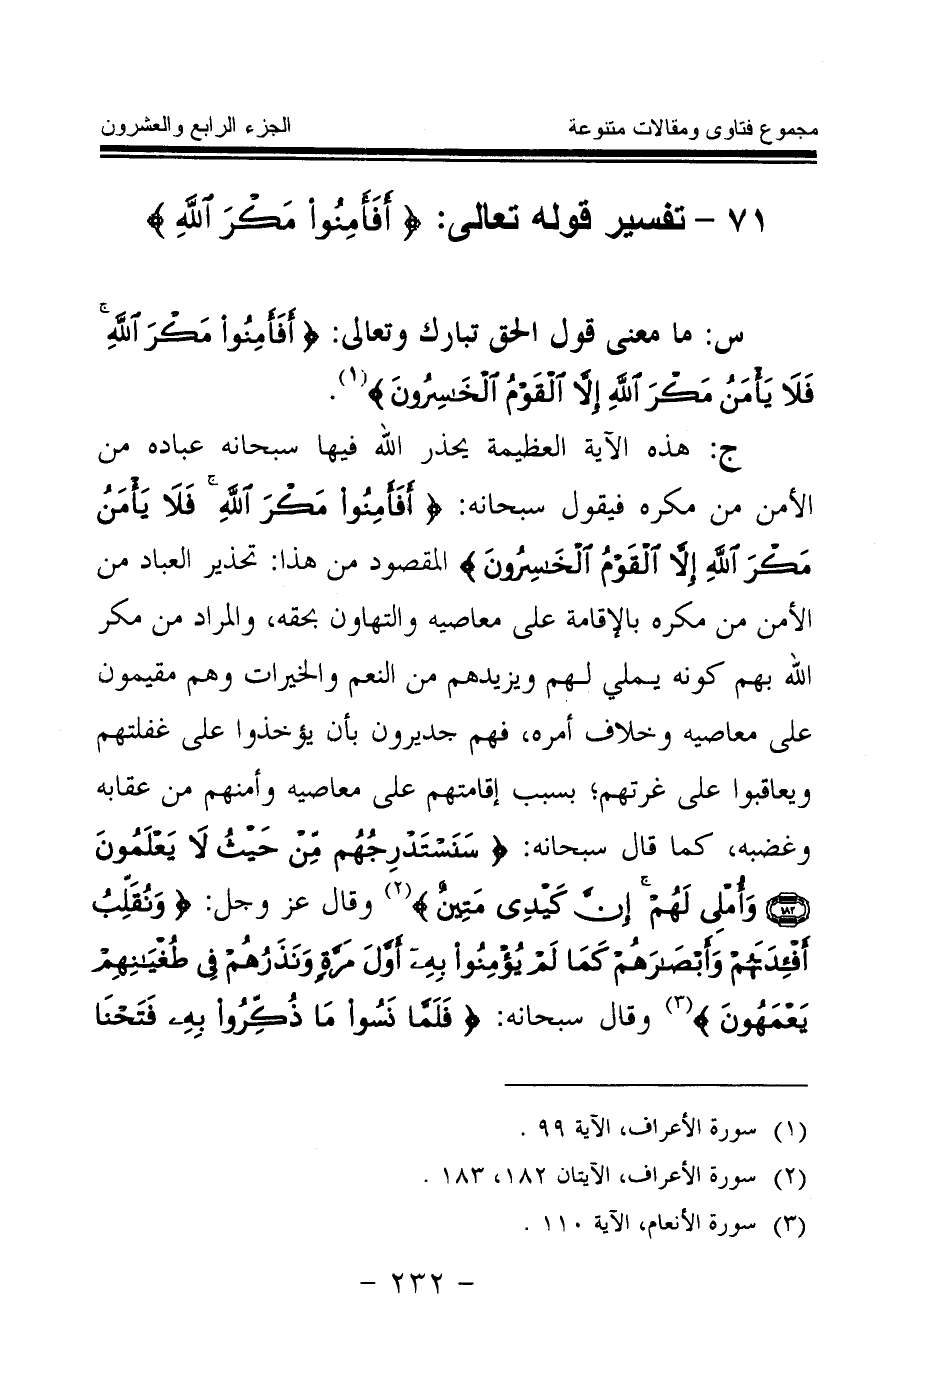 مجموع فتاوى ومقالات متنوعة الجزء الرابع والعشرون
٧١ - تفسير قوله تعالى: ﴿ أَفَأَمِنُوا۟ مَكْرَ ٱللَّهِ ﴾
س: ما معنى قول الحق تبارك وتعالى: ﴿ أَفَأَمِنُوا۟ مَكْرَ ٱللَّهِ ۚ
فَلَا يَأْمَنُ مَكْرَ ٱللَّهِ إِلَّا ٱلْقَوْمُ ٱلْخَـٰسِرُونَ ﴾(١).
ج: هذه الآية العظيمة يحذر الله فيها سبحانه عباده من
الأمن من مكره فيقول سبحانه: ﴿ أَفَأَمِنُوا۟ مَكْرَ ٱللَّهِ ۚ فَلَا يَأْمَنُ
مَكْرَ ٱللَّهِ إِلَّا ٱلْقَوْمُ ٱلْخَـٰسِرُونَ ﴾ المقصود من هذا: تحذير العباد من
الأمن من مكره بالإقامة على معاصيه والتهاون بحقه، والمراد من مكر
الله بهم كونه يملي لهم ويزيدهم من النعم والخيرات وهم مقيمون
على معاصيه وخلاف أمره، فهم جديرون بأن يؤخذوا على غفلتهم
ويعاقبوا على غرتهم؛ بسبب إقامتهم على معاصيه وأمنهم من عقابه
وغضبه، كما قال سبحانه: ﴿ سَنَسْتَدْرِجُهُم مِّنْ حَيْثُ لَا يَعْلَمُونَ
۝١٨٢ وَأُمْلِى لَهُمْ ۚ إِنَّ كَيْدِى مَتِينٌ ﴾(٢) وقال عز وجل: ﴿ وَنُقَلِّبُ
أَفْـِٔدَتَهُمْ وَأَبْصَـٰرَهُمْ كَمَا لَمْ يُؤْمِنُوا۟ بِهِۦٓ أَوَّلَ مَرَّةٍ وَنَذَرُهُمْ فِى طُغْيَـٰنِهِمْ
يَعْمَهُونَ ﴾(٣) وقال سبحانه: ﴿ فَلَمَّا نَسُوا۟ مَا ذُكِّرُوا۟ بِهِۦ فَتَحْنَا
(١) سورة الأعراف، الآية ٩٩ .
(٢) سورة الأعراف، الآيتان ١٨٢، ١٨٣ .
(٣) سورة الأنعام، الآية ١١٠ .
- ٢٣٢ -